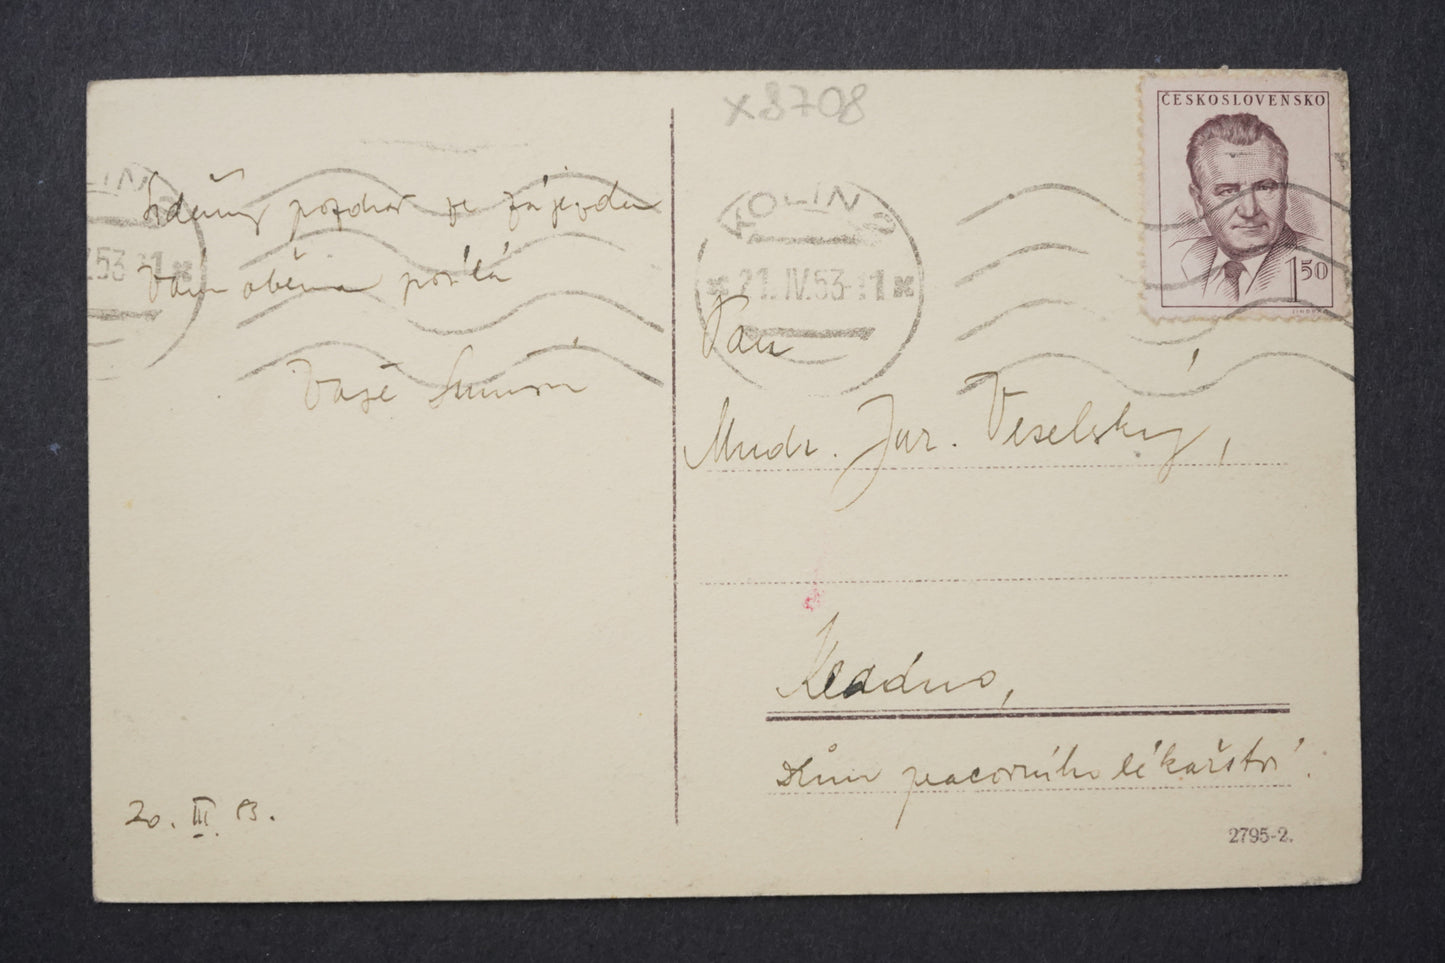 x8708
ČESKOSLOVENSKO
1 50
KOLÍN 2
21.IV.53-11
Srdečný pozdrav ze zájezdu
Vám oběma posílá
Vaše
20. III. 53.
Pan
Mudr. Jar. Veselský,
Kladno,
Dům pracovního lékařství.
2795-2.